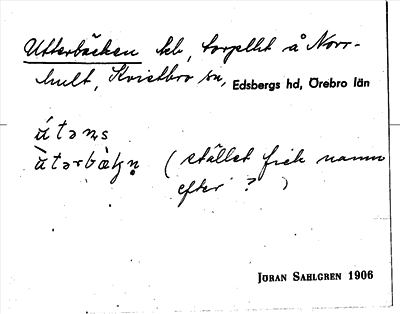 Utterbäcken hb, torpllht å Norr-
hult, Kvistbro sn, Edsbergs hd, Örebro län
útəns
ùtərbàkn (stället fick namn
efter ? )
JÖRAN SAHLGREN 1906